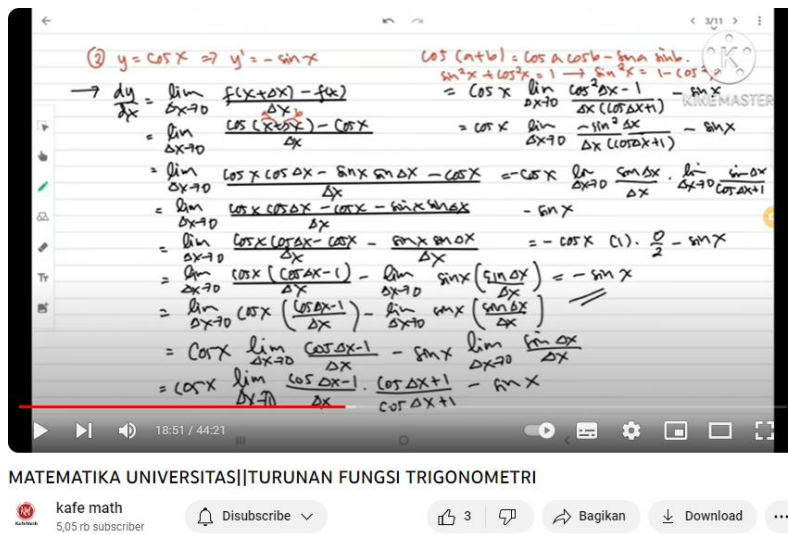 3/11
② y = cos x ⇒ y' = - sin x
cos (a+b) = cos a cos b - sin a sin b.
sin²x + cos²x = 1 → sin²x = 1 - cos²x
K
KINEMASTER
→ dy/dx = lim Δx→0 f(x+Δx) - f(x) / Δx
= lim Δx→0 cos (x+Δx) - cos x / Δx
a b
= lim Δx→0 cos x cos Δx - sin x sin Δx - cos x / Δx
= lim Δx→0 cos x cos Δx - cos x - sin x sin Δx / Δx
= lim Δx→0 cos x cos Δx - cos x / Δx - sin x sin Δx / Δx
= lim Δx→0 cos x (cos Δx - 1) / Δx - lim Δx→0 sin x (sin Δx / Δx)
= lim Δx→0 cos x (cos Δx - 1 / Δx) - lim Δx→0 sin x (sin Δx / Δx)
= cos x lim Δx→0 cos Δx - 1 / Δx - sin x lim Δx→0 sin Δx / Δx
= cos x lim Δx→0 cos Δx - 1 / Δx . cos Δx + 1 / cos Δx + 1 - sin x
= cos x lim Δx→0 cos² Δx - 1 / Δx (cos Δx + 1) - sin x
= cos x lim Δx→0 - sin² Δx / Δx (cos Δx + 1) - sin x
= - cos x lim Δx→0 sin Δx / Δx . lim Δx→0 sin Δx / cos Δx + 1
- sin x
= - cos x (1) . 0/2 - sin x
= - sin x
Tr
18:51 / 44:21
MATEMATIKA UNIVERSITAS||TURUNAN FUNGSI TRIGONOMETRI
kafe math
5,05 rb subscriber
Disubscribe
3
Bagikan
Download